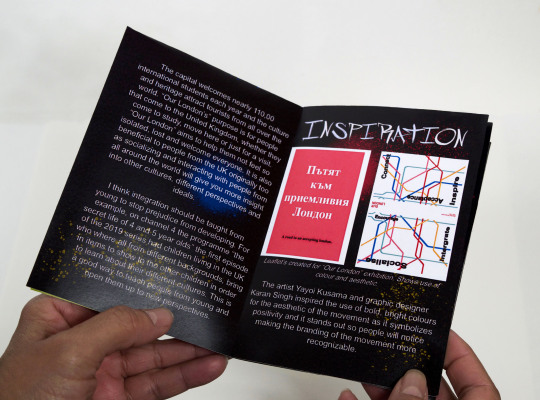 The capital welcomes nearly 110,00
international students each year and the culture
and heritage attract tourists from all over the
world. "Our London's" purpose is for people
that come to the United Kingdom, whether they
come to study, move here or just for a visit.
"Our London" aims to help them not feel so
isolated, lost and welcome everyone. It is also
beneficial to people from the UK originally too
as socializing and interacting with people from
all around the world will give you more insight
into other cultures, different perspectives and
ideals.
I think integration should be taught from
young to stop prejudice from developing. For
example, on channel 4 the programme "the
secret life of 4 and 5 year olds" the first episode
of the 2019 series had children living in the UK
who where all from different backgrounds, bring
in items to show to the other children in order
to learn about their different cultures. This is
a good way to teach people from young and
open them up to new perspectives.
INSPIRATION
Пътят
към
приемливия
Лондон
A road to an accepting London.
Connect
Acceptance
Inspire
Socialise
Intergrate
Leaflets created for "Our London" exhibition. Shows use of
colour and aesthetic.
The artist Yayoi Kusama and graphic designer
Karan Singh inspired the use of bold, bright colours
for the aesthetic of the movement as it symbolizes
positivity and it stands out so people will notice
making the branding of the movement more
recognizable.